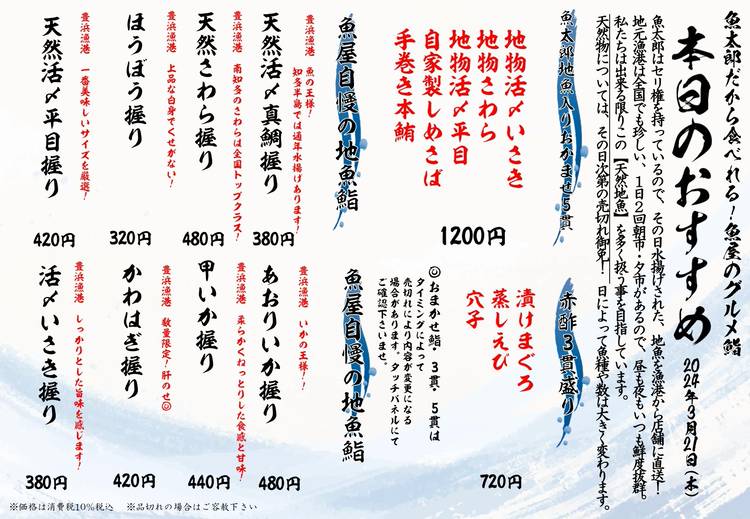 魚太郎だから食べれる！魚屋のグルメ鮨
本日のおすすめ
2024年3月21日（木）
魚太郎はセリ権を持っているので、その日水揚げされた、地魚を漁港から店舗に直送！
地元漁港は全国でも珍しい、1日2回朝市・夕市があるので、昼も夜もいつも鮮度抜群。
私たちは出来る限りこの【天然地魚】を多く扱う事を目指しています。
天然物については、その日次第の売切れ御免！ 日によって魚種や数は大きく変わります。
魚太郎地魚入りおかませ5貫
地物活〆いさき
地物さわら
地物活〆平目
自家製しめさば
手巻き本鮪
1200円
赤酢3貫盛り
漬けまぐろ
蒸しえび
穴子
720円
☺おまかせ鮨・3貫・5貫は
タイミングによって
売切れにより内容が変更になる
場合があります。タッチパネルにて
ご確認下さいませ。
魚屋自慢の地魚鮨
豊浜漁港 魚の王様！
知多半島では通年水揚げあります！
天然活〆真鯛握り
380円
豊浜漁港 南知多のさわらは全国トップクラス！
天然さわら握り
480円
豊浜漁港 上品な白身でくせがない！
ほうぼう握り
320円
豊浜漁港 一番美味しいサイズを厳選！
天然活〆平目握り
420円
魚屋自慢の地魚鮨
豊浜漁港 いかの王様！！
あおりいか握り
480円
豊浜漁港 柔らかくねっとりした食感と甘味！
甲いか握り
440円
豊浜漁港 数量限定！肝のせ☺
かわはぎ握り
420円
豊浜漁港 しっかりとした旨味を感じます！
活〆いさき握り
380円
※価格は消費税10%税込 ※品切れの場合はご容赦下さい